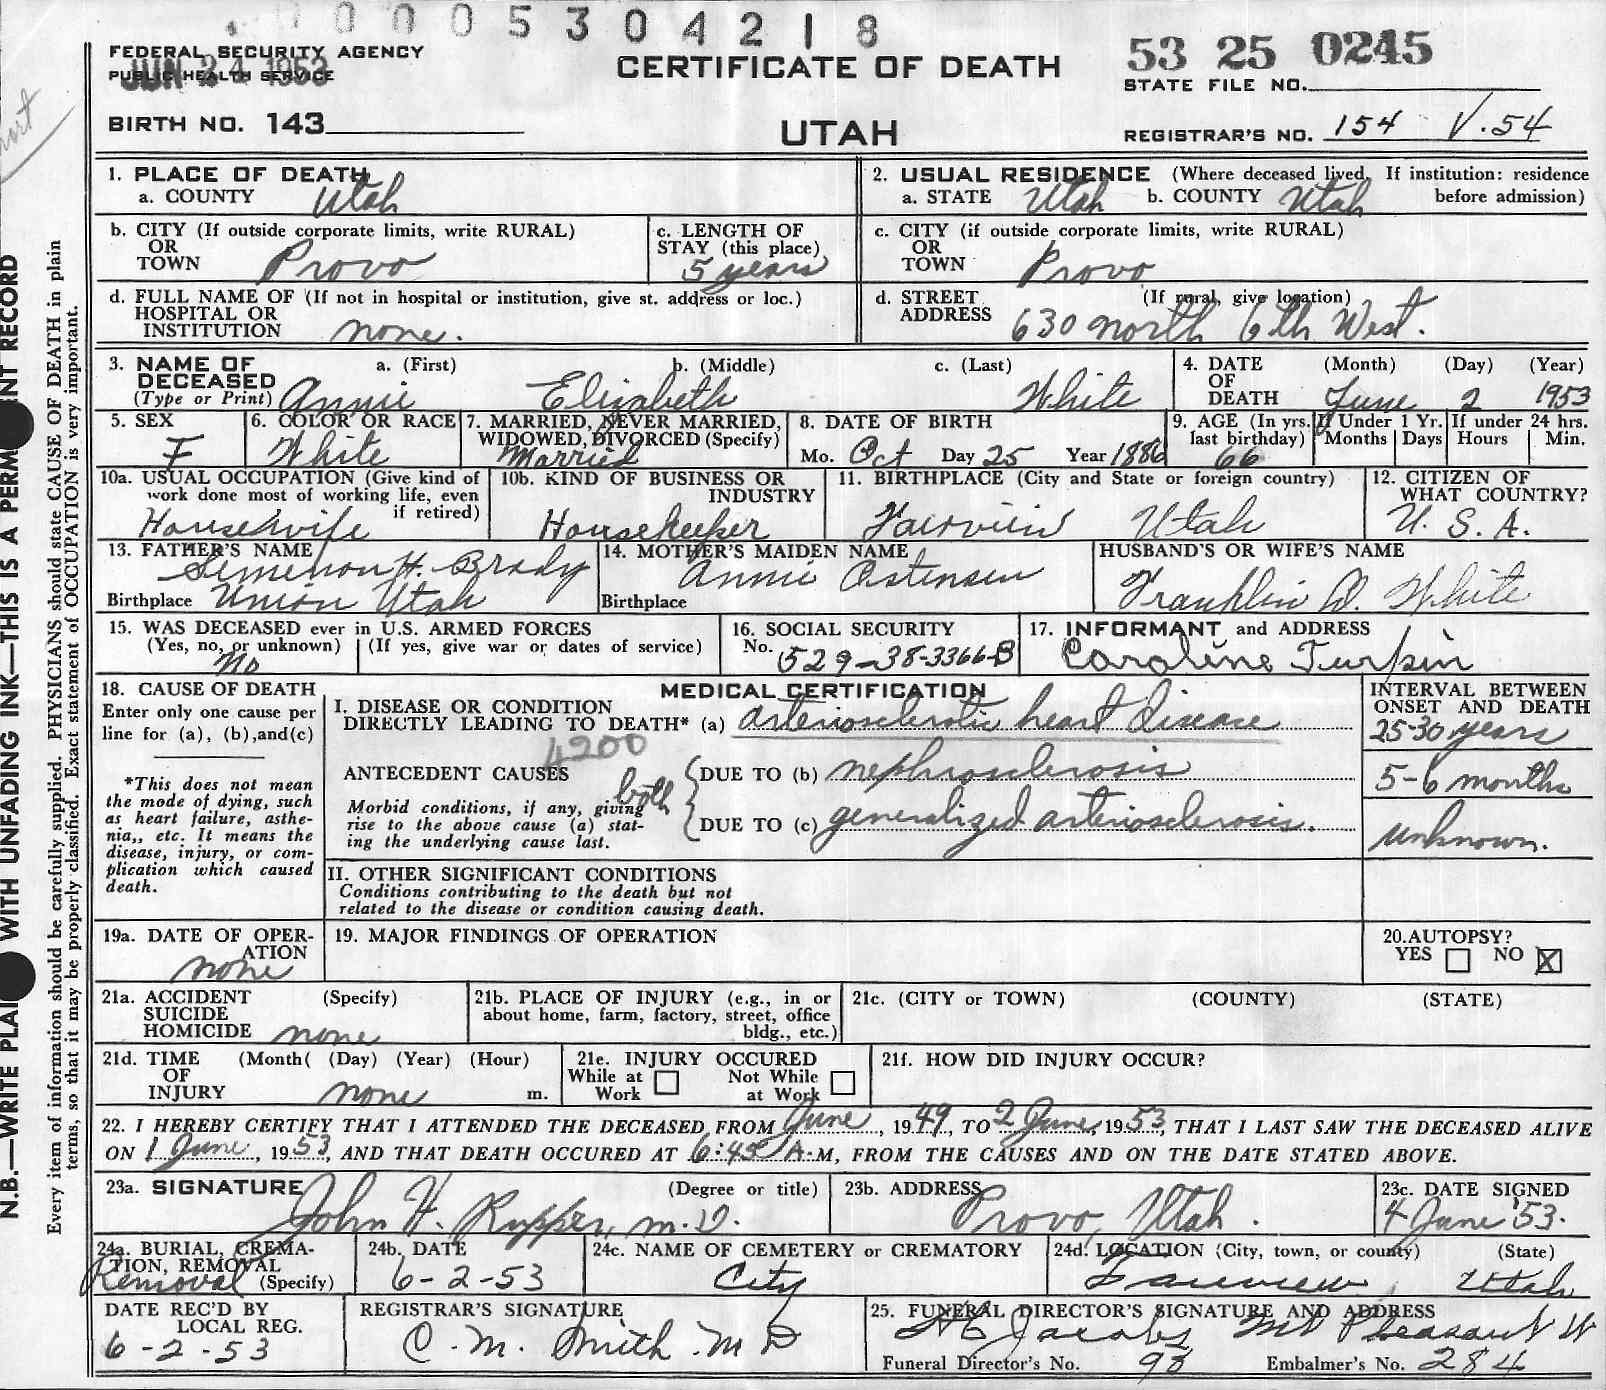 0 0 0 5 3 0 4 2 1 8
FEDERAL SECURITY AGENCY
PUBLIC HEALTH SERVICE
JUN 24 1953
CERTIFICATE OF DEATH
53 25 0245
STATE FILE NO.
BIRTH NO. 143
UTAH
REGISTRAR'S NO. 154 V.54
1. PLACE OF DEATH
a. COUNTY Utah
2. USUAL RESIDENCE (Where deceased lived. If institution: residence before admission)
a. STATE Utah b. COUNTY Utah
b. CITY (If outside corporate limits, write RURAL)
OR
TOWN Provo
c. LENGTH OF
STAY (this place)
5 years
c. CITY (if outside corporate limits, write RURAL)
OR
TOWN Provo
d. FULL NAME OF (If not in hospital or institution, give st. address or loc.)
HOSPITAL OR
INSTITUTION none.
d. STREET (If rural, give location)
ADDRESS 630 North 6th West.
3. NAME OF DECEASED (Type or Print)
a. (First) b. (Middle) c. (Last)
Annie Elizabeth White
4. DATE OF DEATH (Month) (Day) (Year)
June 2 1953
5. SEX
F
6. COLOR OR RACE
White
7. MARRIED, NEVER MARRIED,
WIDOWED, DIVORCED (Specify)
Married
8. DATE OF BIRTH
Mo. Oct Day 25 Year 1886
9. AGE (In yrs. last birthday)
66
If Under 1 Yr. Months Days
If under 24 hrs. Hours Min.
10a. USUAL OCCUPATION (Give kind of
work done most of working life, even
if retired)
Housewife
10b. KIND OF BUSINESS OR
INDUSTRY
Housekeeper
11. BIRTHPLACE (City and State or foreign country)
Fairview Utah
12. CITIZEN OF
WHAT COUNTRY?
U. S. A.
13. FATHER'S NAME
H. Brady
Birthplace Union Utah
14. MOTHER'S MAIDEN NAME
Annie Ostensen
Birthplace
HUSBAND'S OR WIFE'S NAME
Franklin D. White
15. WAS DECEASED ever in U.S. ARMED FORCES
(Yes, no, or unknown) (If yes, give war or dates of service)
No
16. SOCIAL SECURITY
No. 529-38-3366-B
17. INFORMANT and ADDRESS
Caroline Turpin
18. CAUSE OF DEATH
Enter only one cause per
line for (a), (b), and (c)
*This does not mean
the mode of dying, such
as heart failure, asthe-
nia,, etc. It means the
disease, injury, or com-
plication which caused
death.
MEDICAL CERTIFICATION
I. DISEASE OR CONDITION
DIRECTLY LEADING TO DEATH* (a) arteriosclerotic heart disease
4200
ANTECEDENT CAUSES
both
Morbid conditions, if any, giving
rise to the above cause (a) stat-
ing the underlying cause last.
DUE TO (b) nephrosclerosis
DUE TO (c) generalized arteriosclerosis.
INTERVAL BETWEEN
ONSET AND DEATH
25-30 years
5-6 months
unknown.
II. OTHER SIGNIFICANT CONDITIONS
Conditions contributing to the death but not
related to the disease or condition causing death.
19a. DATE OF OPER-
ATION
none
19. MAJOR FINDINGS OF OPERATION
20. AUTOPSY?
YES NO X
21a. ACCIDENT (Specify)
SUICIDE
HOMICIDE none
21b. PLACE OF INJURY (e.g., in or
about home, farm, factory, street, office
bldg., etc.)
21c. (CITY or TOWN) (COUNTY) (STATE)
21d. TIME (Month( (Day) (Year) (Hour)
OF
INJURY none m.
21e. INJURY OCCURED
While at Work Not While at Work
21f. HOW DID INJURY OCCUR?
22. I HEREBY CERTIFY THAT I ATTENDED THE DECEASED FROM June, 1949, TO 2 June, 1953, THAT I LAST SAW THE DECEASED ALIVE
ON 1 June, 1953, AND THAT DEATH OCCURED AT 6:45 A.M, FROM THE CAUSES AND ON THE DATE STATED ABOVE.
23a. SIGNATURE (Degree or title)
John H. Rupper, M.D.
23b. ADDRESS
Provo, Utah.
23c. DATE SIGNED
4 June '53.
24a. BURIAL, CREMA-
TION, REMOVAL
Removal (Specify)
24b. DATE
6-2-53
24c. NAME OF CEMETERY or CREMATORY
City
24d. LOCATION (City, town, or county) (State)
Fairview Utah
DATE REC'D BY
LOCAL REG.
6-2-53
REGISTRAR'S SIGNATURE
C. M. Smith M D
25. FUNERAL DIRECTOR'S SIGNATURE AND ADDRESS
Jacobs Mt Pleasant
Funeral Director's No. 93 Embalmer's No. 284
N.B.—WRITE WITH UNFADING INK—THIS IS A RECORD
Every item of information should be carefully supplied. PHYSICIANS should state CAUSE OF DEATH in plain
terms, so that it may be properly classified. Exact statement of OCCUPATION is very important.